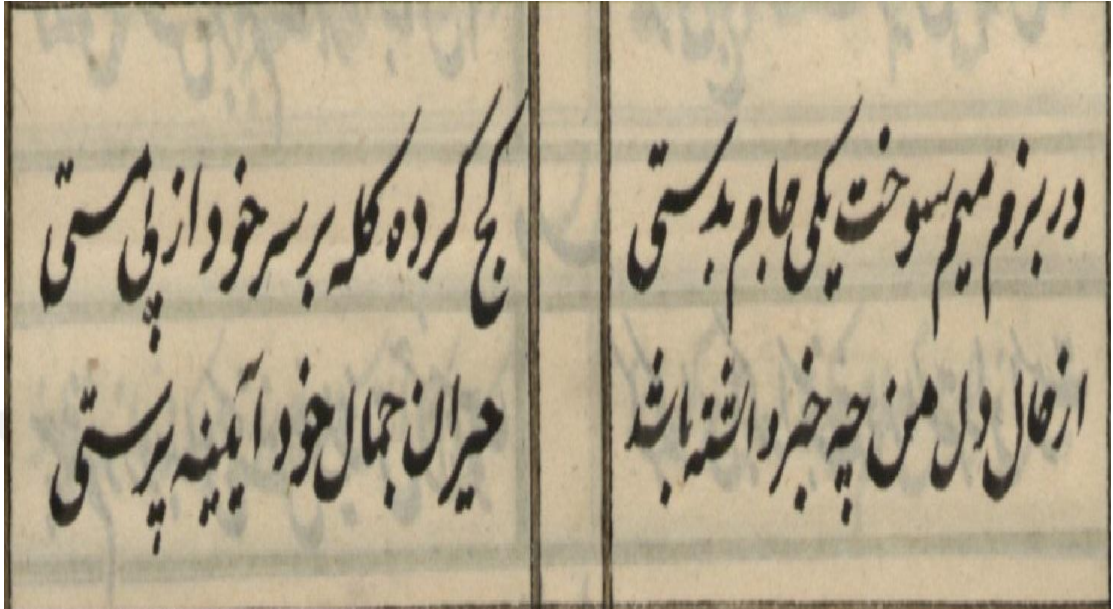 در بزم میم سوخت یکی جام بدستی
کج کرده کله بر سر خود از پی مستی
از حال دل من چه خبر داشته باشد
حیران جمال خود آیینه پرستی